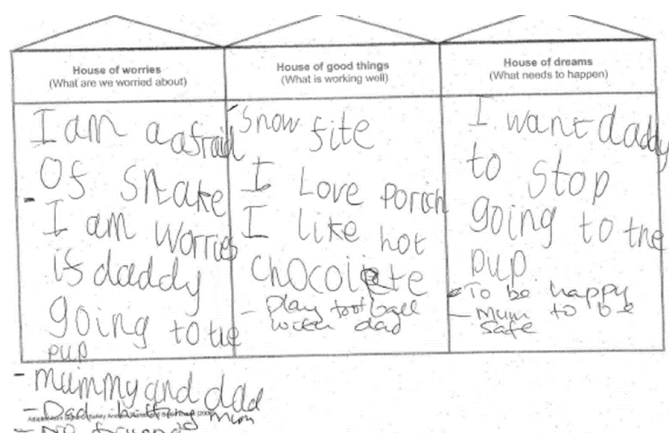 House of worries
(What are we worried about)
I am a afraid
Of snake
- I am worries
is daddy
going to the
pup
- mummy and dad
- Dad hitting mum
House of good things
(What is working well)
Snow fite
I Love porich
I like hot
chocolete
- Play football
with dad
House of dreams
(What needs to happen)
I want daddy
to stop
going to the
pup
- To be happy
- Mum to be
safe